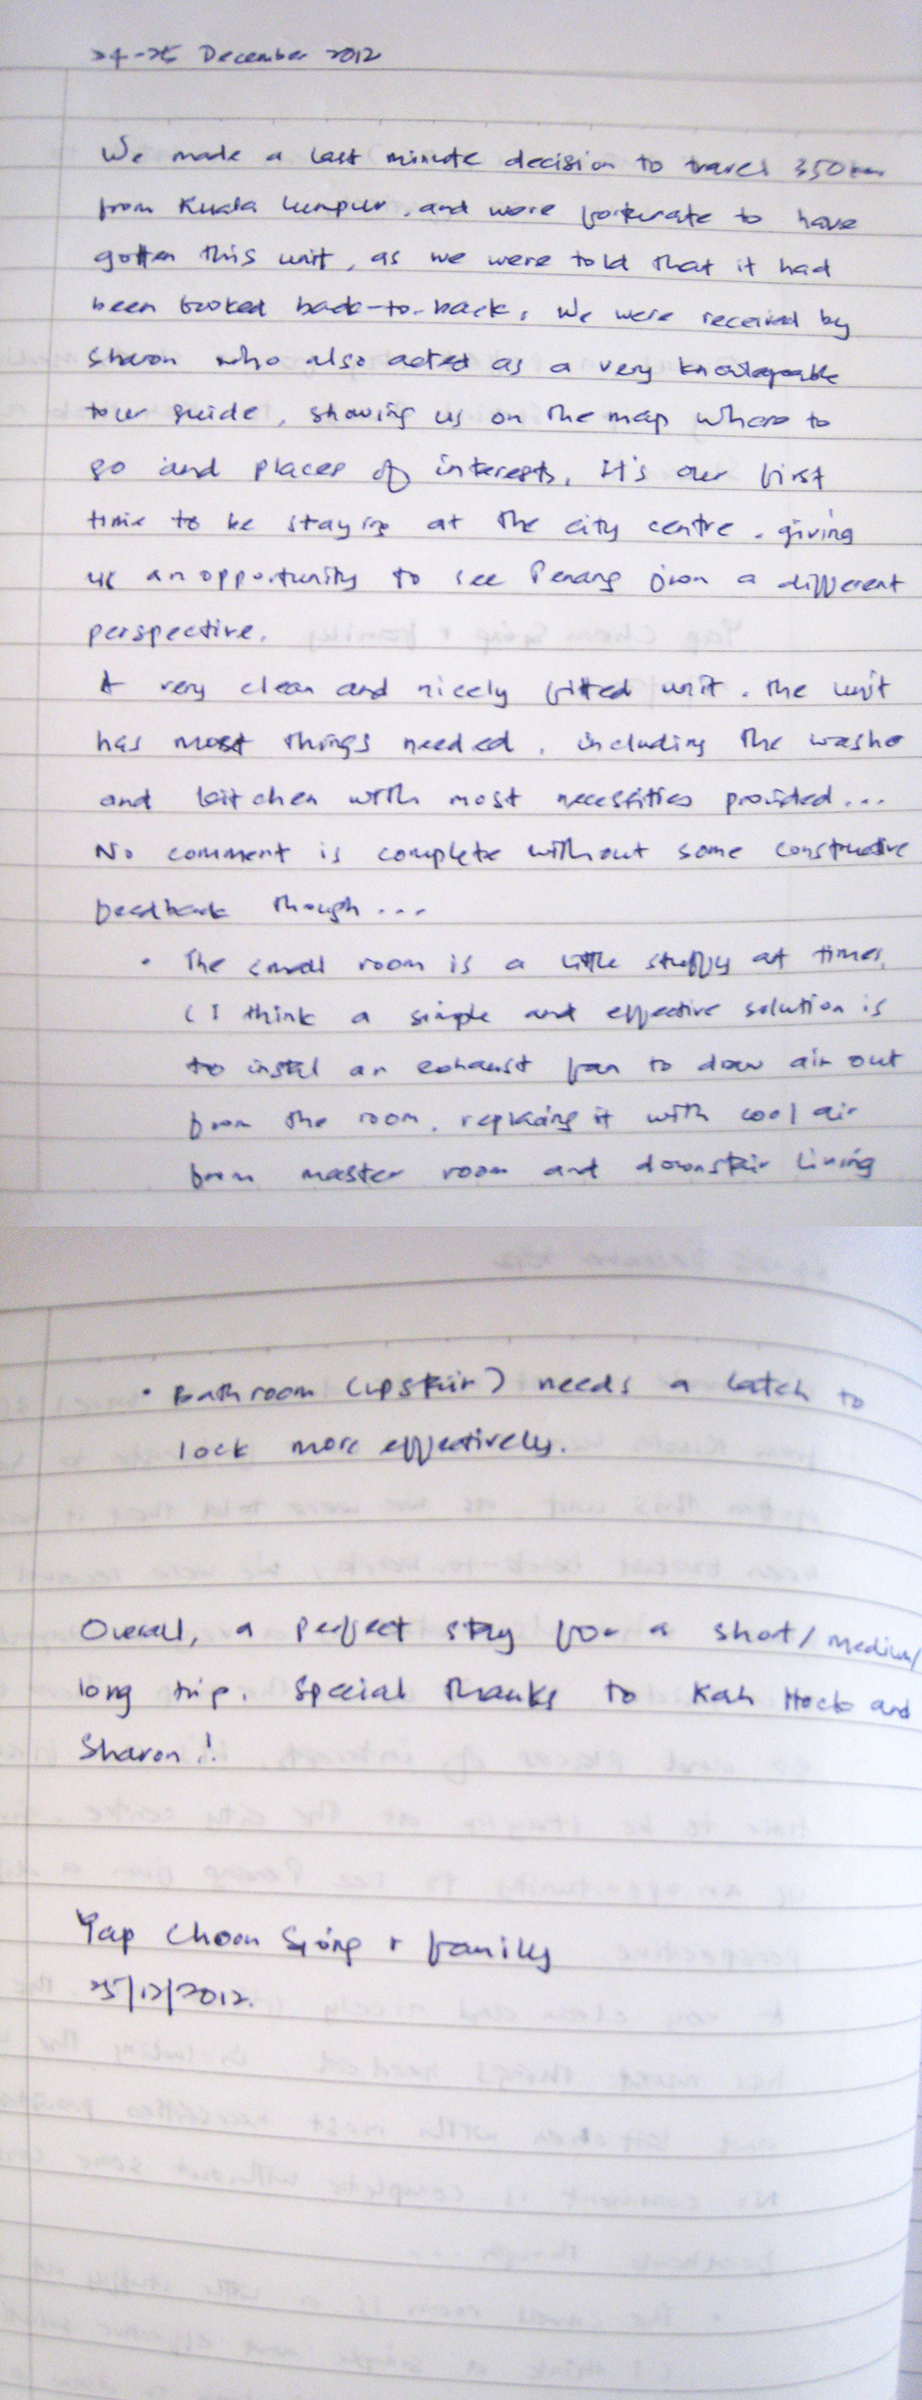 24-25 December 2012
We made a last minute decision to travel 350km
from Kuala Lumpur, and were fortunate to have
gotten this unit, as we were told that it had
been booked back-to-back. We were received by
Sharon who also acted as a very knowledgeable
tour guide, showing us on the map where to
go and places of interests. It's our first
time to be staying at the city centre, giving
us an opportunity to see Penang from a different
perspective.
A very clean and nicely fitted unit. The unit
has most things needed, including the washer
and kitchen with most necessities provided...
No comment is complete without some constructive
feedback though...
• The small room is a little stuffy at times.
(I think a simple and effective solution is
to instal an exhaust fan to draw air out
from the room, replacing it with cool air
from master room and downstair living
• Bathroom (upstair) needs a latch to
lock more effectively.
Overall, a perfect stay for a short/medium/
long trip. Special thanks to Kah Hock and
Sharon!
Yap Choon Siong + family
25/12/2012.